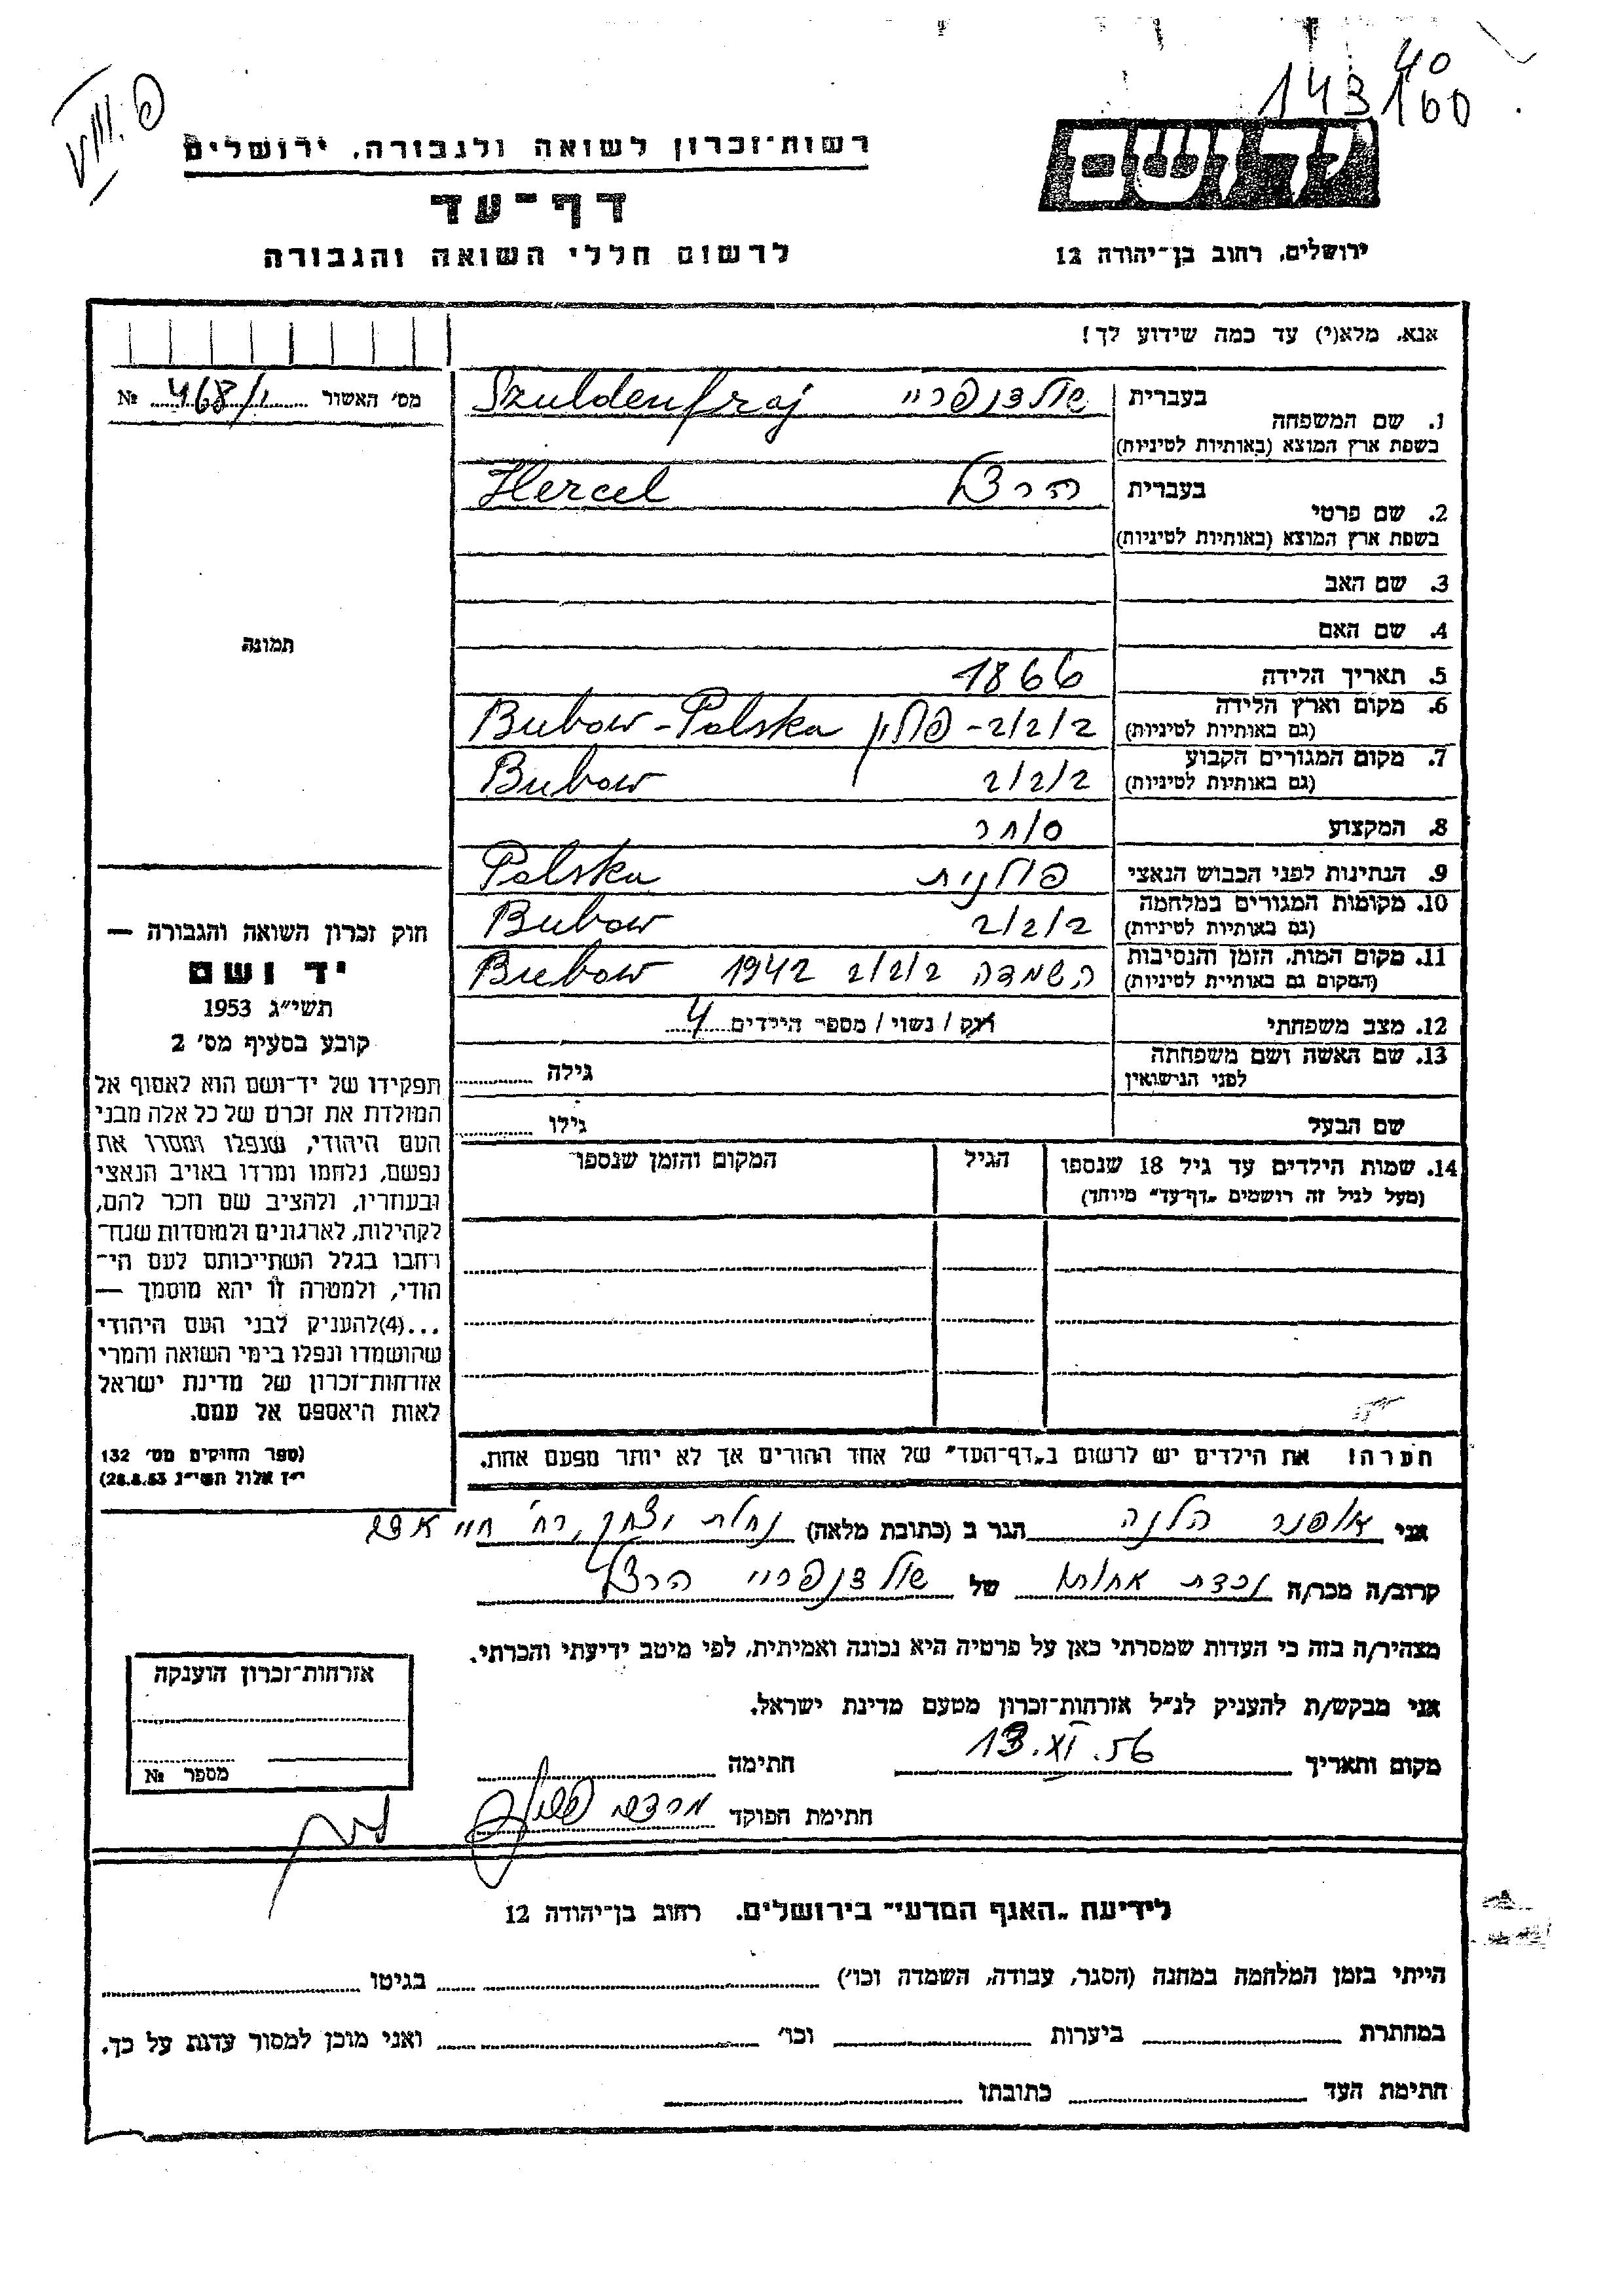 143
40
160
VIII.פ
רשות-זכרון לשואה ולגבורה, ירושלים
דף-עד
לרשום חללי השואה והגבורה
יד ושם
ירושלים, רחוב בן-יהודה 12
אנא, מלא(י) עד כמה שידוע לך!
מס' האשור 468/1 №
1. שם המשפחה בעברית שולדנפריי Szuldenfraj
בשפת ארץ המוצא (באותיות לטיניות)
2. שם פרטי בעברית הרצל Hercel
בשפת ארץ המוצא (באותיות לטיניות)
3. שם האב
4. שם האם
תמונה
5. תאריך הלידה 1866
6. מקום וארץ הלידה בובוב - פולין Bubow - Polska
(גם באותיות לטיניות)
7. מקום המגורים הקבוע בובוב Bubow
(גם באותיות לטיניות)
8. המקצוע סוחר
9. הנתינות לפני הכבוש הנאצי פולנית Polska
10. מקומות המגורים במלחמה בובוב Bubow
(גם באותיות לטיניות)
11. מקום המות, הזמן והנסיבות השמדה בובוב 1942 Bubow
(המקום גם באותיות לטיניות)
12. מצב משפחתי רוק / נשוי / מספר הילדים 4
13. שם האשה ושם משפחתה גילה
לפני הנישואין
שם הבעל גילו
14. שמות הילדים עד גיל 18 שנספו הגיל המקום והזמן שנספו
(מעל לגיל זה רושמים "דף-עד" מיוחד)
חוק זכרון השואה והגבורה —
יד ושם
תשי"ג 1953
קובע בסעיף מס' 2
תפקידו של יד-ושם הוא לאסוף אל
המולדת את זכרם של כל אלה מבני
העם היהודי, שנפלו ומסרו את
נפשם, נלחמו ומרדו באויב הנאצי
ובעוזריו, ולהציב שם וזכר להם,
לקהילות, לארגונים ולמוסדות שנח-
רבו בגלל השתייכותם לעם הי-
הודי, ולמטרה זו יהא מוסמך —
...(4)להעניק לבני העם היהודי
שהושמדו ונפלו בימי השואה והמרי
אזרחות-זכרון של מדינת ישראל
לאות היאספם אל עמם.
(ספר החוקים מס' 132
י"ז אלול תשי"ג 28.8.53)
הערה! את הילדים יש לרשום ב"דף-העד" של אחד ההורים אך לא יותר מפעם אחת.
אני אופנר הלנה הגר ב (כתובת מלאה) נחלת יצחק, רח'
קרוב/ה מכר/ה נכדת אחותו של שולדנפריי הרצל
מצהיר/ה בזה כי העדות שמסרתי כאן על פרטיה היא נכונה ואמיתית, לפי מיטב ידיעתי והכרתי.
אני מבקש/ת להעניק לנ"ל אזרחות-זכרון מטעם מדינת ישראל.
מקום ותאריך 13.XI.56 חתימה
חתימת הפוקד
אזרחות-זכרון הוענקה
מספר №
לידיעת "האגף המדעי" בירושלים, רחוב בן-יהודה 12
הייתי בזמן המלחמה במחנה (הסגר, עבודה, השמדה וכו') בגיטו
במחתרת ביערות וכו' ואני מוכן למסור עדות על כך.
חתימת העד כתובתו